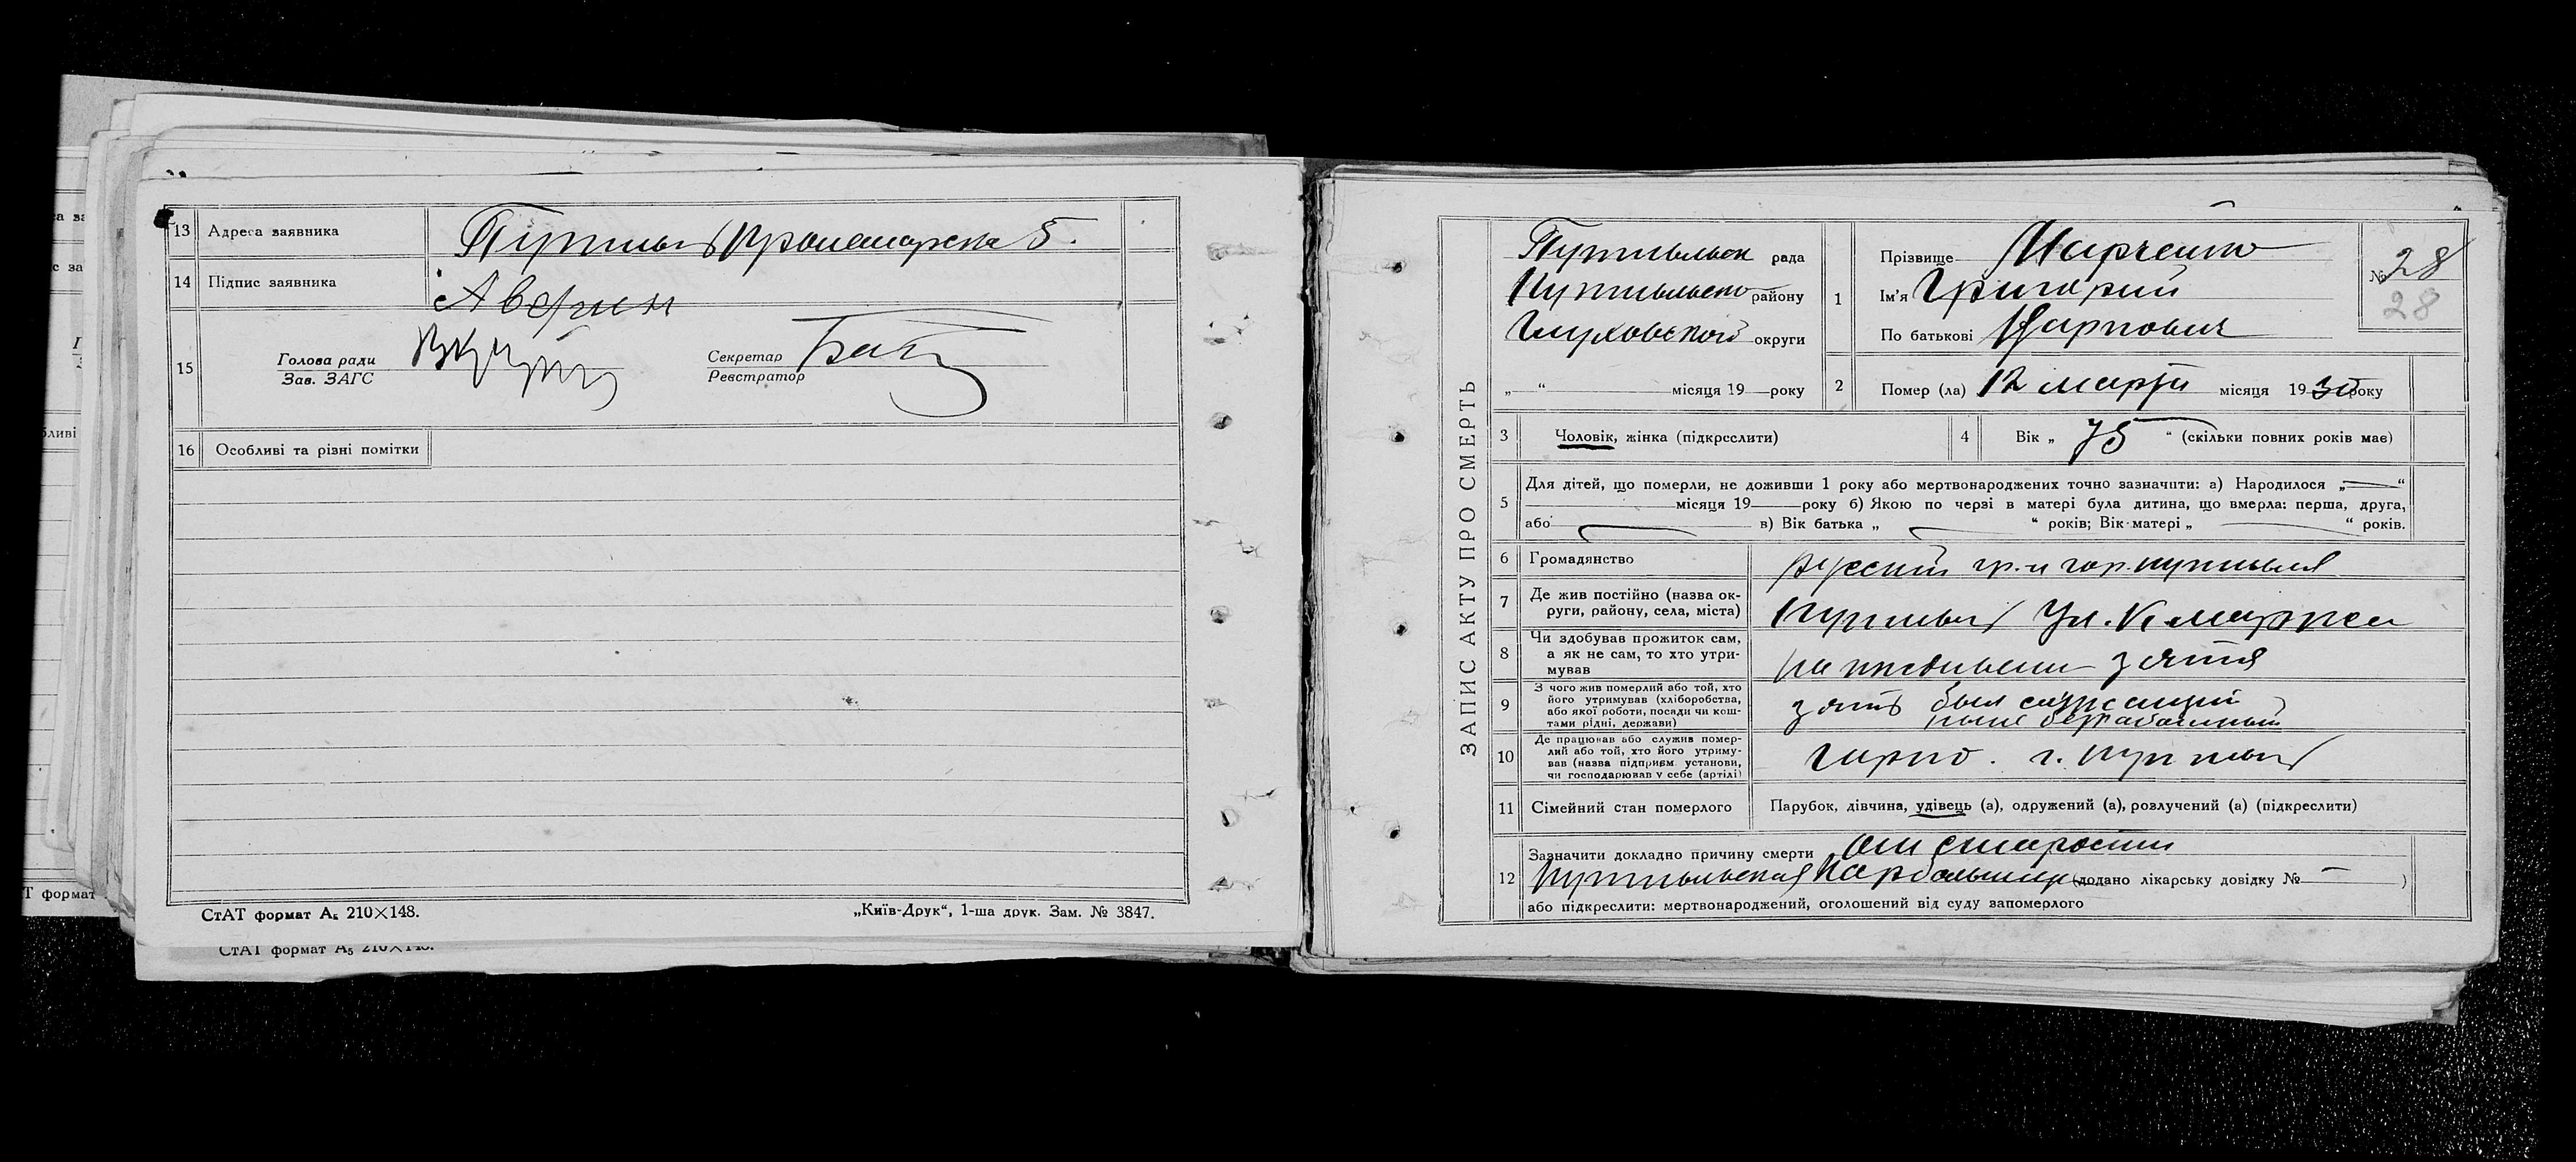 13 Адреса заявника Путивль Пролетарска 5.
14 Підпис заявника Аверин
15 Голова ради
Зав. ЗАГС
Секретар
Реєстратор
16 Особливі та різні помітки
СтАТ формат А₅ 210×148. „Київ-Друк“, 1-ша друк. Зам. № 3847.
СтАТ формат А₅ 210×148.
Т формат
ЗАПИС АКТУ ПРО СМЕРТЬ
Путивльск рада
Путивльского району
Глуховской округи
„ “ місяця 19 року
1 Прізвище Марченко
Ім'я Григорий
По батькові Карпович
№ 28
28
2 Помер (ла) 12 марта місяця 1930 року
3 Чоловік, жінка (підкреслити)
4 Вік „ 75 “ (скільки повних років має)
5 Для дітей, що померли, не доживши 1 року або мертвонароджених точно зазначити: а) Народилося „ “
місяця 19 року б) Якою по черзі в матері була дитина, що вмерла: перша, друга,
або в) Вік батька „ “ років; Вік матері „ “ років.
6 Громадянство русский гр-н гор. Путивля
7 Де жив постійно (назва ок-
руги, району, села, міста) Путивль Ул. К Маркса
8 Чи здобував прожиток сам,
а як не сам, то хто утри-
мував на иждивении зятя
9 З чого жив померлий або той, хто
його утримував (хліборобства,
або якої роботи, посади чи кош-
тами рідні, держави) зять был служащий
ныне безработный
10 Де працював або служив помер-
лий або той, хто його утриму-
вав (назва підприєм. установи,
чи господарював у себе (артілі) г. Путивль
11 Сімейний стан померлого Парубок, дівчина, удівець (а), одружений (а), розлучений (а) (підкреслити)
12 Зазначити докладно причину смерти от старости
Путивльская Нарбольница (додано лікарську довідку № — )
або підкреслити: мертвонароджений, оголошений від суду запомерлого